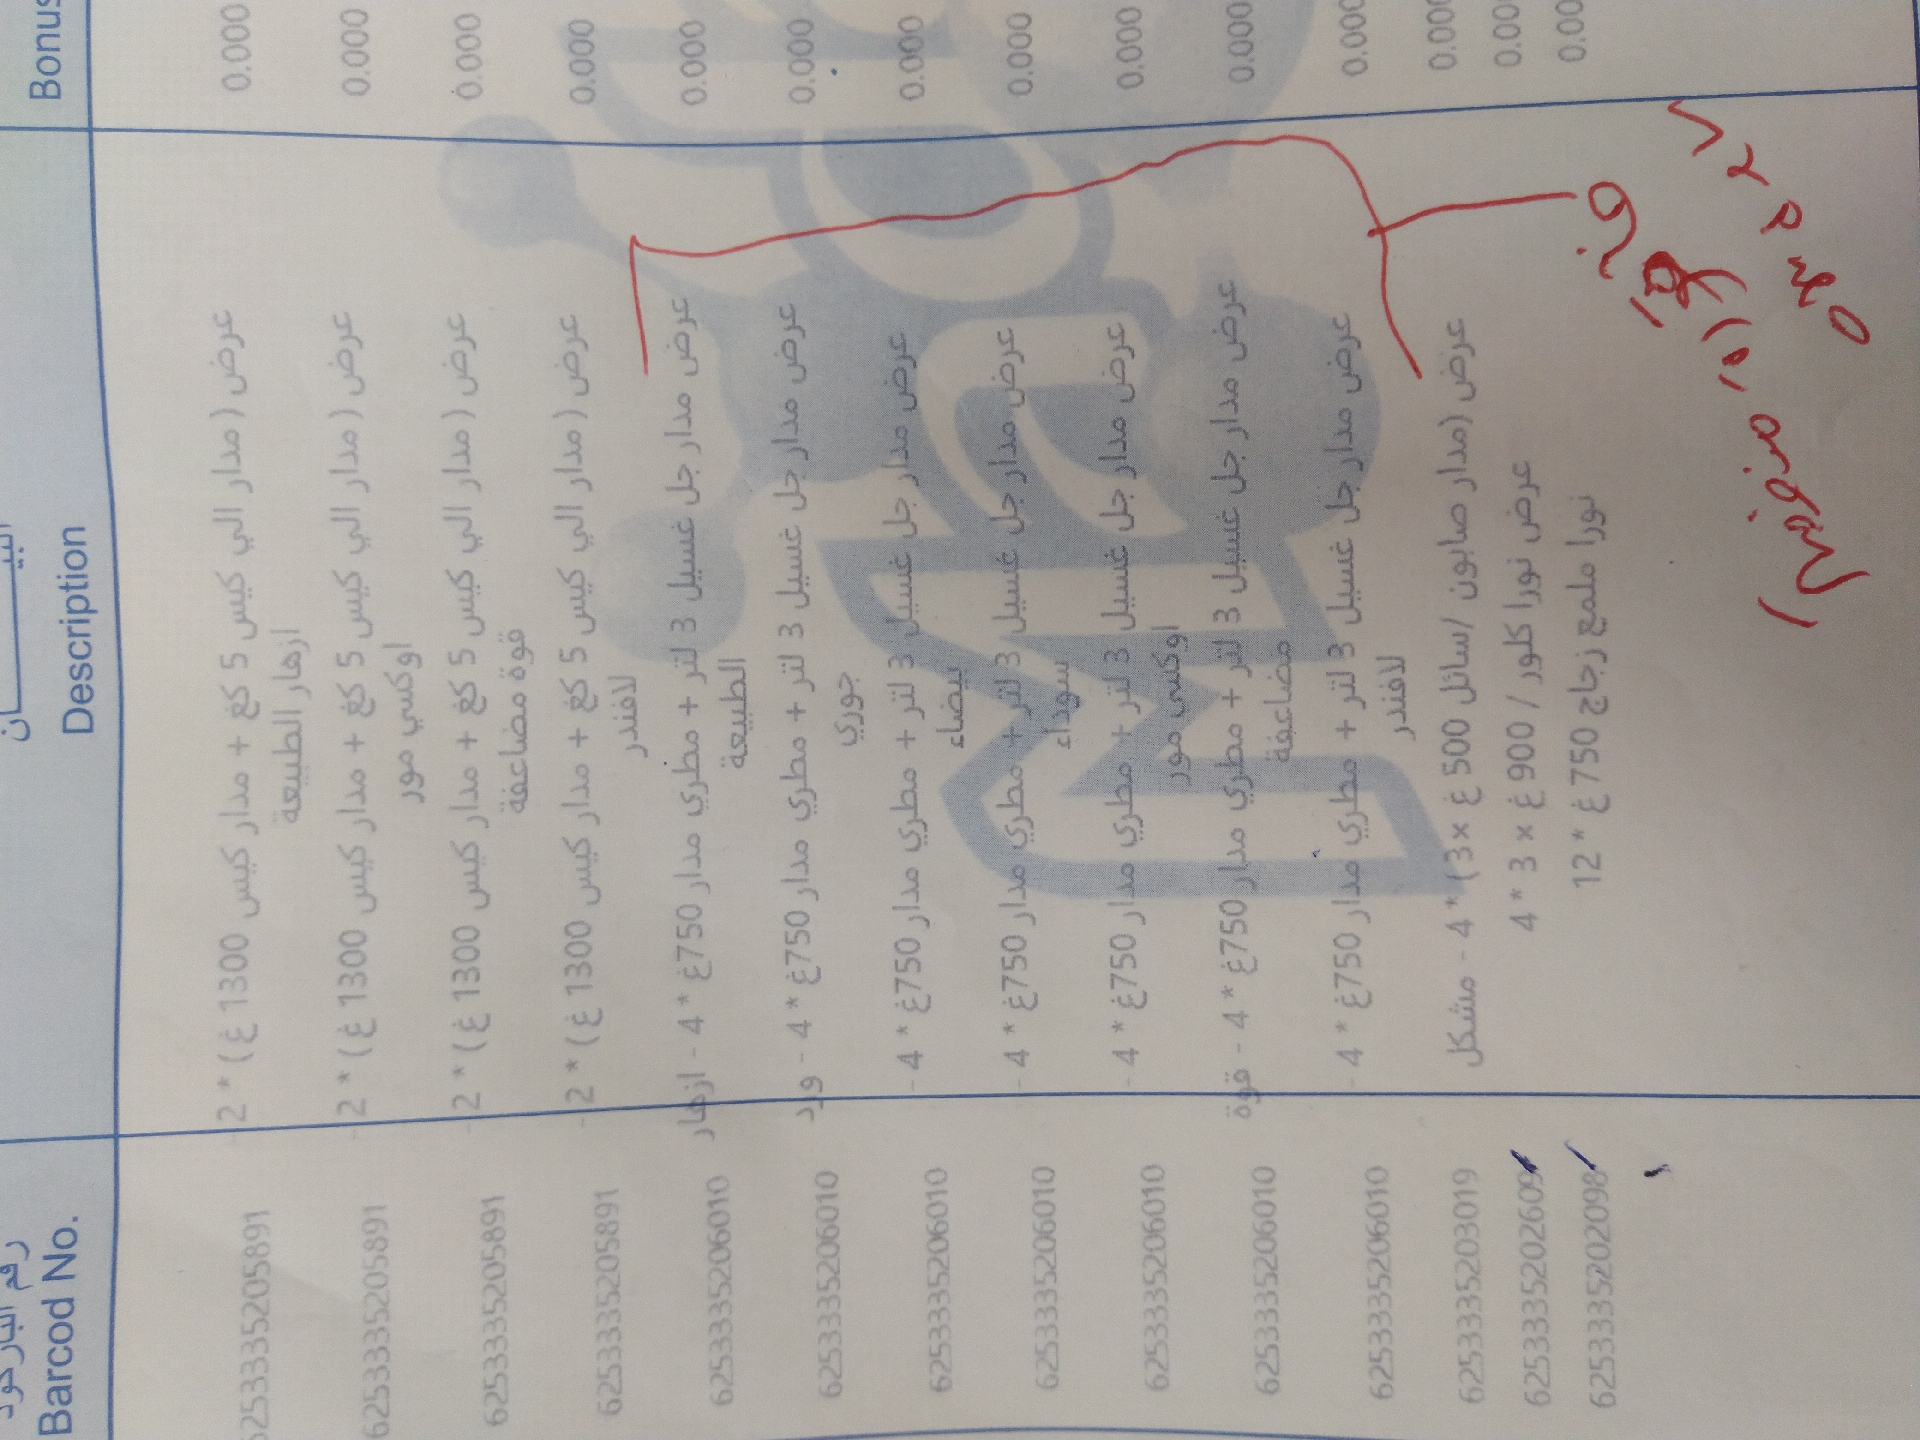 رقم الباركود البيـــــــان
Barcod No. Description Bonus
6253335205891 عرض (مدار الي كيس 5 كغ + مدار كيس 1300 غ) * 2 - 0.000
ازهار الطبيعة
6253335205891 عرض (مدار الي كيس 5 كغ + مدار كيس 1300 غ) * 2 - 0.000
اوكسي مور
6253335205891 عرض (مدار الي كيس 5 كغ + مدار كيس 1300 غ) * 2 - 0.000
قوة مضاعفة
6253335205891 عرض (مدار الي كيس 5 كغ + مدار كيس 1300 غ) * 2 - 0.000
لافندر
6253335206010 عرض مدار جل غسيل 3 لتر + مطري مدار 750غ * 4 - ازهار 0.000
الطبيعة
6253335206010 عرض مدار جل غسيل 3 لتر + مطري مدار 750غ * 4 - ورد 0.000
جوري
6253335206010 عرض مدار جل غسيل 3 لتر + مطري مدار 750غ * 4 - 0.000
بيضاء
6253335206010 عرض مدار جل غسيل 3 لتر + مطري مدار 750غ * 4 - 0.000
سوداء
6253335206010 عرض مدار جل غسيل 3 لتر + مطري مدار 750غ * 4 - 0.000
اوكسي مور
6253335206010 عرض مدار جل غسيل 3 لتر + مطري مدار 750غ * 4 - قوة 0.000
مضاعفة
6253335206010 عرض مدار جل غسيل 3 لتر + مطري مدار 750غ * 4 - 0.000
لافندر
6253335203019 عرض (مدار صابون /سائل 500 غ ×3) * 4 - مشكل 0.000
6253335202609 عرض نورا كلور / 900 غ × 3 * 4 0.00
6253335202098 نورا ملمع زجاج 750 غ * 12 0.00